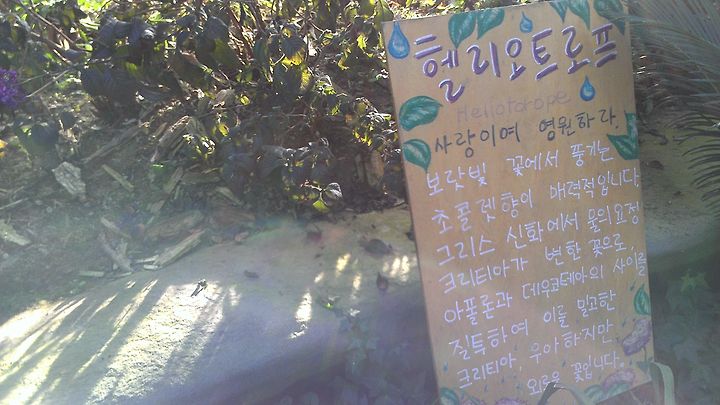 헬리오트로프
Heliotorope
사랑이여 영원하라.
보랏빛 꽃에서 풍기는
초콜렛향이 매력적입니다.
그리스 신화에서 물의요정
크리티아가 변한 꽃으로,
아폴론과 데우코테아의 사이를
질투하여 이를 밀고한
크리티아, 우아하지만,
외로운 꽃입니다.